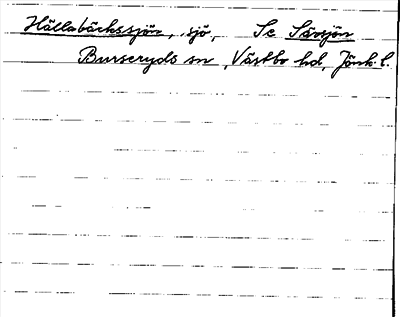 Hällabäckssjön, sjö, Se Särsjön
Burseryds sn, Västbo hd, Jönk. l.